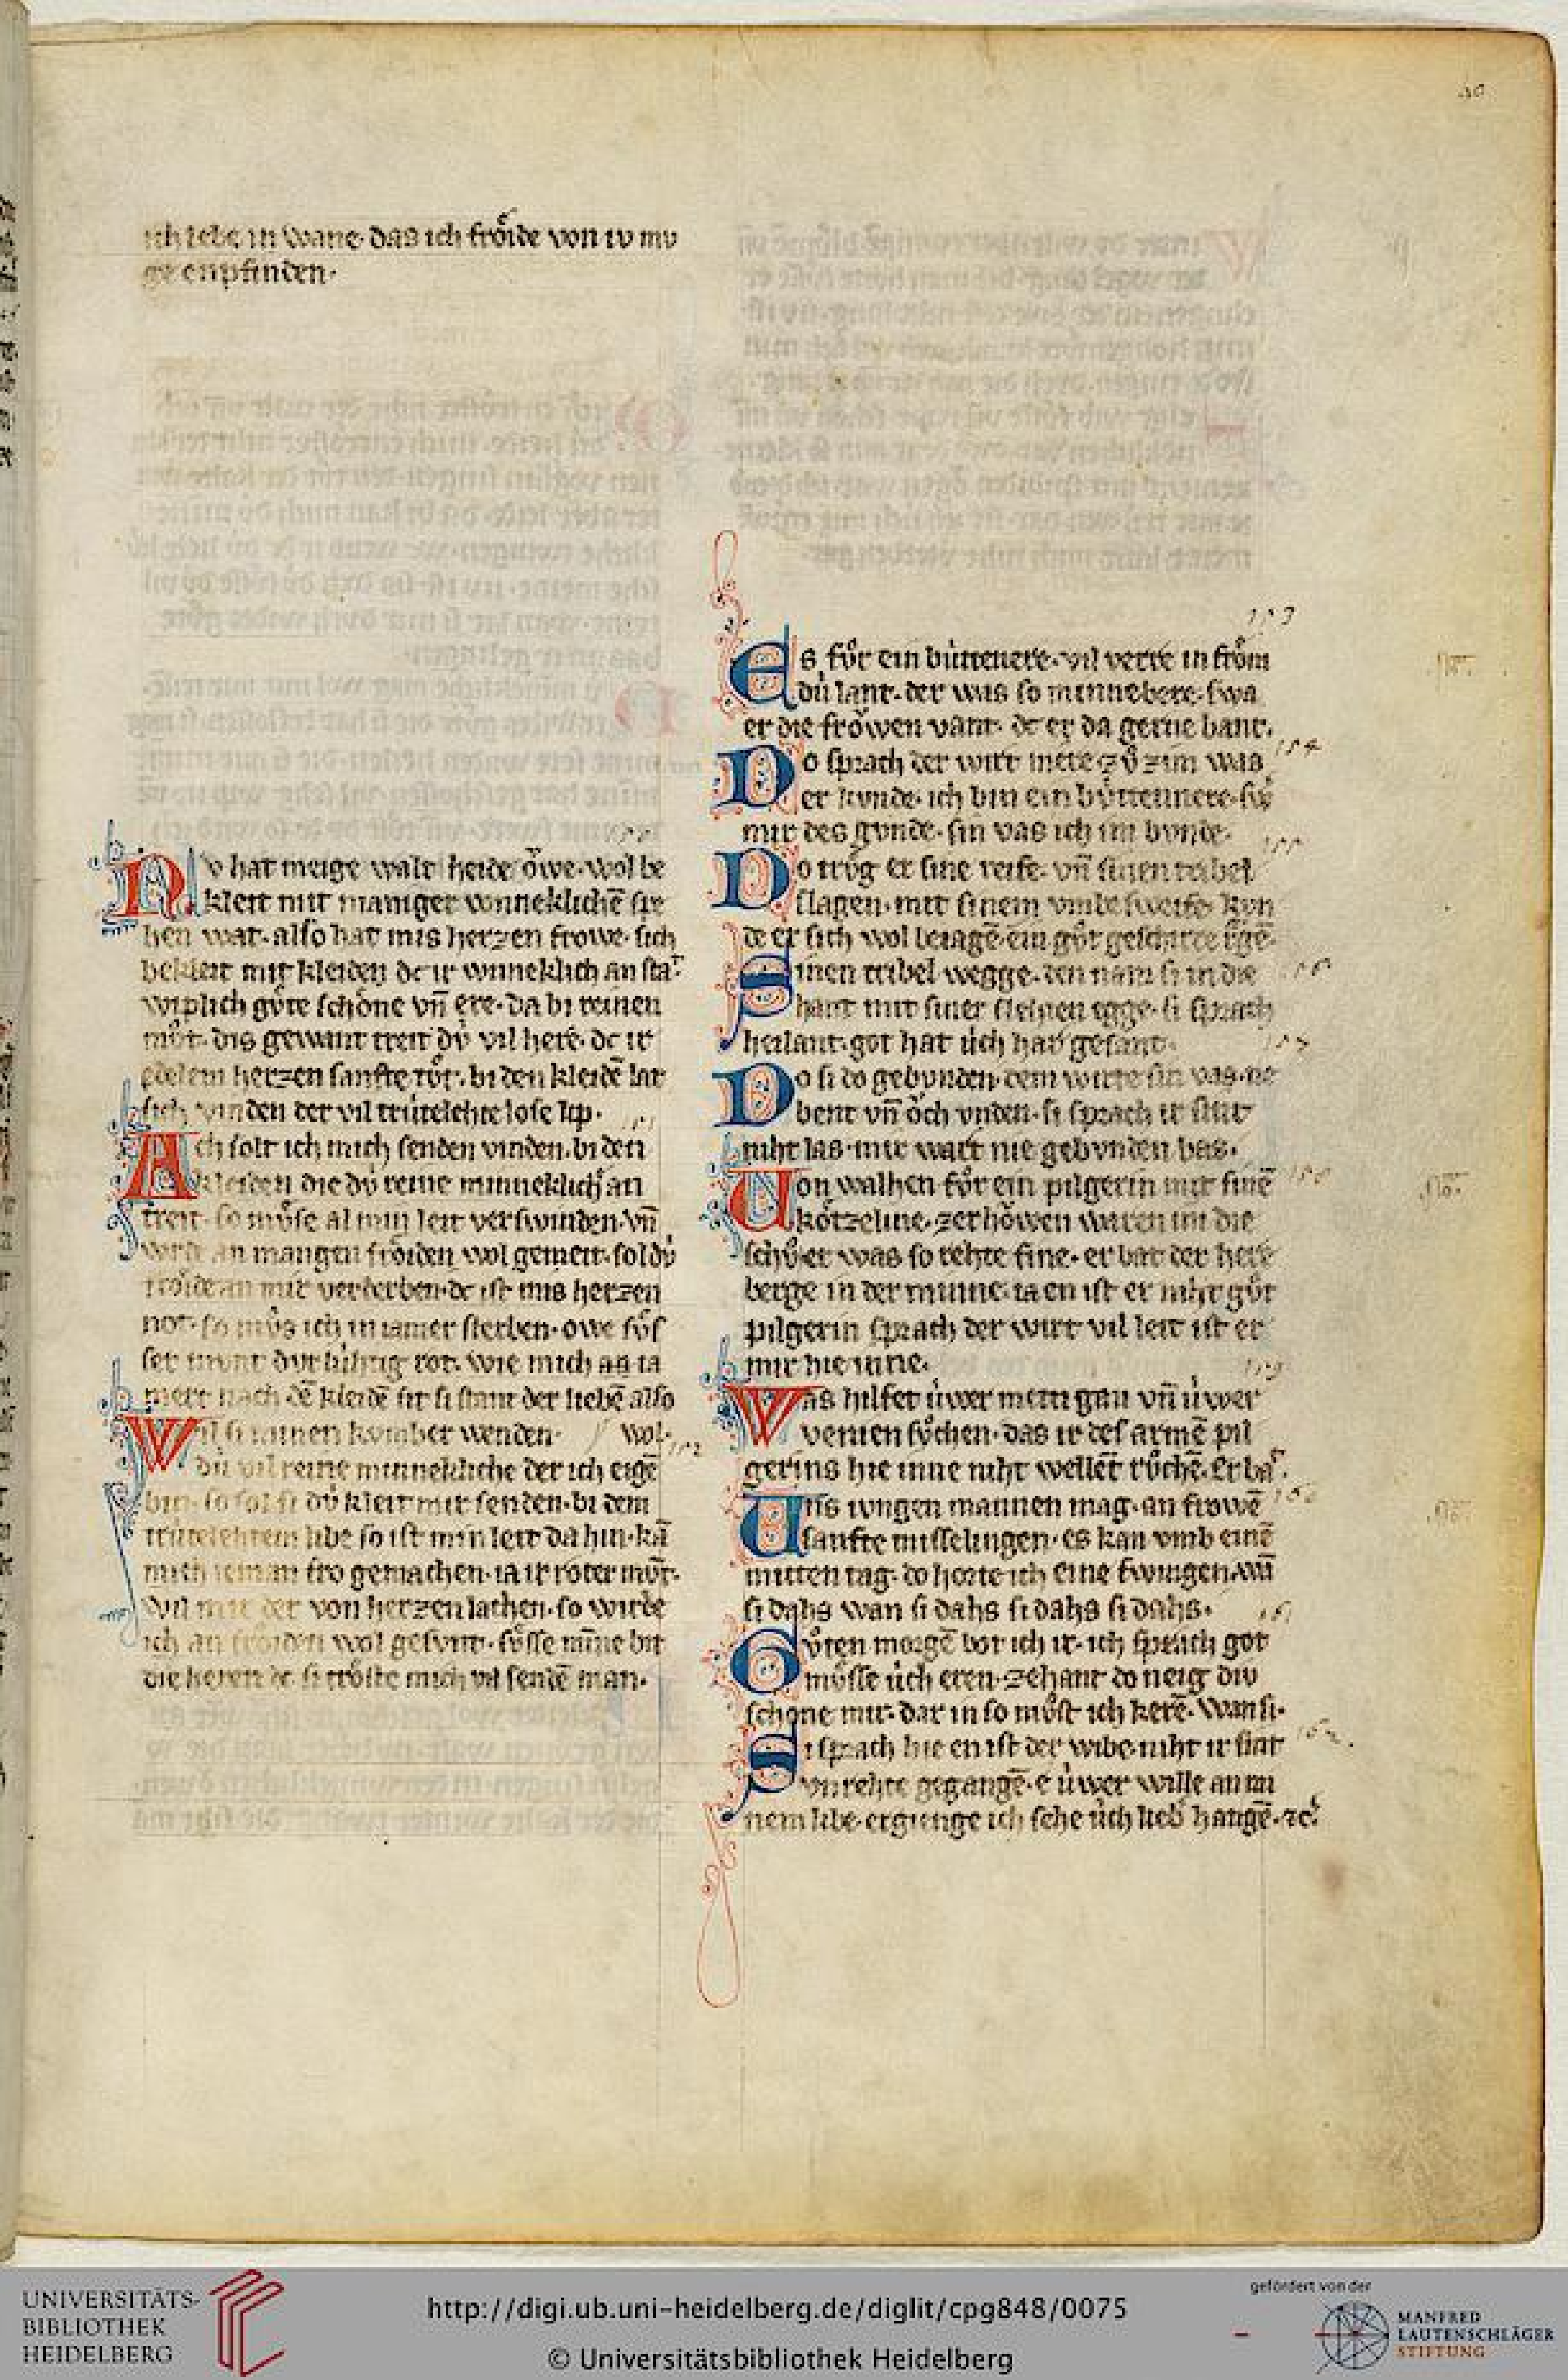 ich lebe in wane· das ich froͤide von iv mv
ge enpfinden·
Nv hat meige walt heide oͮwe· wol be
kleit mit maniger wnneklichē spe
hen wat· also hat mis herzen frowe· sich
bekleit mit kleiden dc ir wnneklich an stat·
wiplich guͤte schoͤne vn̄ ere· da bi reinen
muͦt· dis gewant treit dv́ vil here· dc ir
edelem herzen sanfte tuͦt· bi den kleidē lat
sich vinden der vil trútelehte lose lip·
Ach solt ich mich senden vinden· bi den
kleiden die dv́ reine minneklich an
treit· so muͤse al min leit verswinden· vn̄
wird an mangen froͤiden wol gemeit· sol dv́
froͤide an mir verderben· dc ist mis herzen
not· so muͦs ich in iamer sterben· owe suͤs
ser munt durluhtig rot· wie mich an ia
mert nach dē kleidē sit si stant der liebē also
Wil si minen kumber wenden· wol·
dú vil reine minnekliche der ich eigē
bin· so sol si dv́ kleit mir senden· bi dem
trútelehtem libe so ist min leit da hin· kā
mich ieman fro gemachen· ia ir roter mūt·
wil mir der von herzen lachen· so wirde
ich an froͤiden wol gesunt· suͤsse mīne bit
die heren dc si troͤste mich vil sendē man·
153
Es fuͦr ein búttenere· vil verre in froͤm
dú lant· der was so minnebere· swa
er die froͮwen vant· dc er da gerne bant·
154
Do sprach der wirt mere zuͦ zim was
er kvnde· ich bin ein búttennere· swˢ
mir des gvnde· sin vas ich im bvnde·
155
Do truͦg er sine reife· vn̄ sinen tribel
slagen· mit sinem vmbesweife kvn
de er sich wol beiagē· ein guͦt geschirre tragē·
156
Sinen tribel wegge· den nam si in die
hant mit siner slehten egge· si sprach
heilant· got hat úch har gesant·
157
Do si do gebvnden· dem wirte sin vas· ne
bent vn̄ oͮch vnden· si sprach ir sint
niht las· mir wart nie gebvnden bas·
158
Von walhen fuͦr ein pilgerin mit sinē
kotzeline· zerhoͮwen waren im die
schuͦ· er was so rehte fine· er bat der here
berge in der minne· ia en ist er niht guͦt
pilgerin sprach der wirt vil leit ist er
mir hie inne·
159
Was hilfet úwer mettigan vn̄ úwer
venien suͦchen· das ir des armē pil
gerins hie inne niht wellēt ruͦchē· Er bat·
160
Uns ivngen mannen mag· an frowē
sanfte misselingen· es kan vmb einē
mitten tag· do horte ich eine swingen· wan
si dahs wan si dahs si dahs si dahs·
161
Guͦten morgē bot ich ir· ich sprach got
muͤsse úch eren· zehant do neig div
schone mir· dar in so muͦst ich kerē· Wan si·
162
Si sprach hie en ist der wibe niht ir sint
vnrehte gegangē· e úwer wille an mi
nem libe· ergienge ich sehe úch lieb hangē· ⁊c·
UNIVERSITÄTS-
BIBLIOTHEK
HEIDELBERG
http://digi.ub.uni-heidelberg.de/diglit/cpg848/0075
© Universitätsbibliothek Heidelberg
gefördert von der
MANFRED
LAUTENSCHLÄGER
STIFTUNG